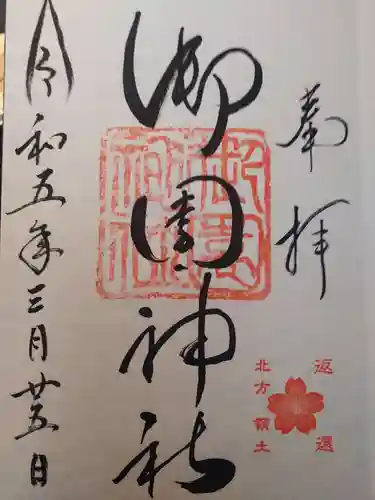 奉拝
御園神社
令和五年三月廿五日
返還
北方領土
御園神社